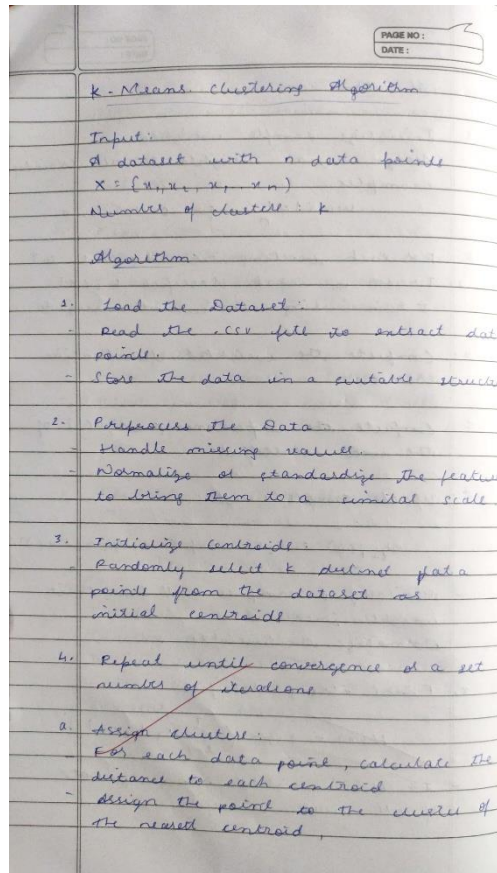 PAGE NO :
DATE :
K - Means clustering Algorithm
Input :
A dataset with n data points
X = {x₁, x₂, x, .. xₙ)
Number of clusters : k
Algorithm
1. Load the Dataset :
- Read the .csv file to extract dat
points.
- Store the data in a suitable structu
2. Preprocess the Data
- Handle missing values.
- Normalize or standardize the featu
to bring them to a similar scale
3. Initialize Centroids :
- Randomly select k distinct data
points from the dataset as
initial centroids
4. Repeat until convergence or a set
number of iterations
a. Assign clusters :
- For each data point, calculate the
distance to each centroid
- Assign the point to the cluster of
the nearest centroid,